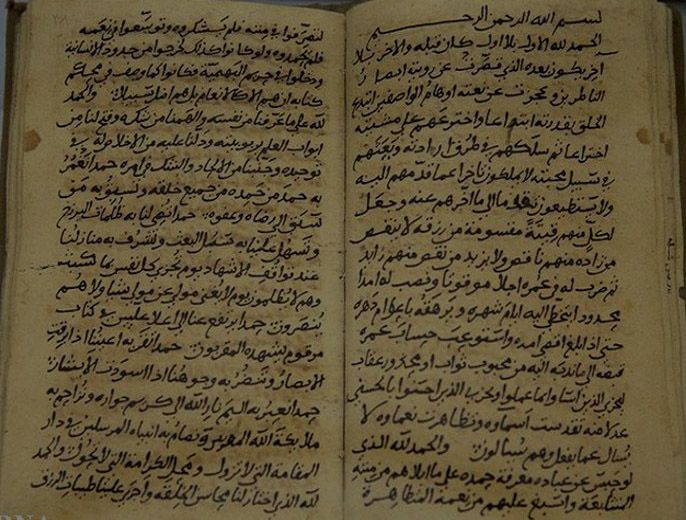 بسم الله الرحمن الرحيم
الحمد لله الاول بلا اول كان قبله والاخر بلا
آخر يكون بعده الذي قصرت عن رويته ابصار
الناظرين وعجزت عن نعته اوهام الواصفين ابتدع
الخلق بقدرته ابتداعا واخترعهم على مشيته
اختراعا ثم سلكهم في طريق ارادته وبعثهم
في سبيل محبته لا يملكون تاخرا عما قدمهم اليه
ولا يستطيعون تقدما الى ما اخرهم عنه وجعل
لكل منهم قيتة مقسومة من رزقه لا ينقص
من زاده منهم ناقص ولا يزيد من نقص منهم زايد
ثم ضرب له في عمره اجلا موقوتا ونصب له امدا
محدودا يتخطى اليه ايام شهره ويرهقه باعوام دهره
حتى اذا بلغ اقصى امده واستوعب حساب عمره
قبضه الى ما ندبه اليه من محبوب ثواب او محذور عقاب
ليجزي الذين اساوا بما عملوا ويجزي الذين احسنوا بالحسنى
عدلا منه تقدست اسماوه وتظاهرت نعماوه لا
يسال عما يفعل وهم يسالون والحمد لله الذي
لو حبس عن عباده معرفة حمده على ما ابلاهم من مننه
المتتابعة واسبغ عليهم من نعمه المتظاهرة
لتصرفوا في مننه فلم يشكروه وتوسعوا في نعمه
فلم يحمدوه ولو كانوا كذلك لخرجوا من حدود الانسانية
ودخلوا في حريم البهيمية فكانوا كما وصف في محكم
كتابه ان هم الا كالانعام بل هم اضل سبيلا والحمد
لله على ما عرفنا من نفسه والهمنا من شكره وفتح لنا من
ابواب العلم بربوبيته ودلنا عليه من الاخلاص له في
توحيده وجنبنا من الالحاد والشك في امره حمدا نعمر
به حمد من حمده من جميع خلقه ونسبق به من
سبق الى رضاه وعفوه حمدا يضي لنا به ظلمات البرزخ
ويسهل علينا به سبيل المبعث ويشرف به منازلنا
عند مواقف الاشهاد يوم تجزى كل نفس بما كسبت
وهم لا يظلمون يوم لا يغني مولى عن مولى شيا ولا هم
ينصرون حمدا يرتفع عنا الى اعلا عليين في كتاب
مرقوم يشهده المقربون حمدا تقر به اعيننا اذا برقت
الابصار وتبيض به وجوهنا اذا اسودت الابشار
حمدا نعتق به من اليم نار الله الى كريم جواره ونزاحم به
ملائكة الله المقربين ونضام به انبياه المرسلين في دار
المقامة التي لا تزول ومحل الكرامة التي لا تحول والحمد
لله الذي اختار لنا محاسن الخلق واجرى علينا طيبات الرزق